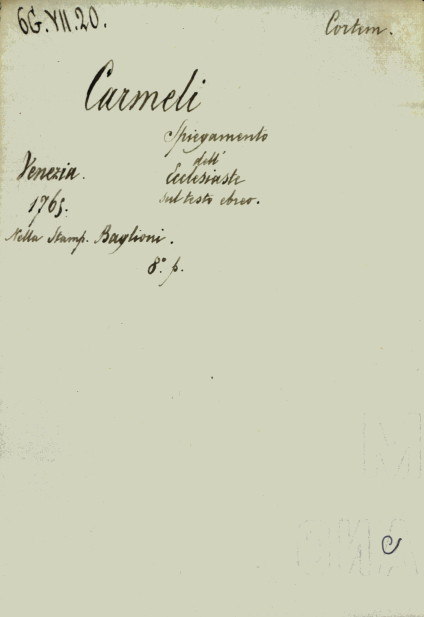 6G.VII.20.
Cortem.
Carmeli
Spiegamento
dell'
Ecclesiaste
sul testo ebreo.
Venezia.
1765.
Nella Stamp. Baglioni.
8.° p.